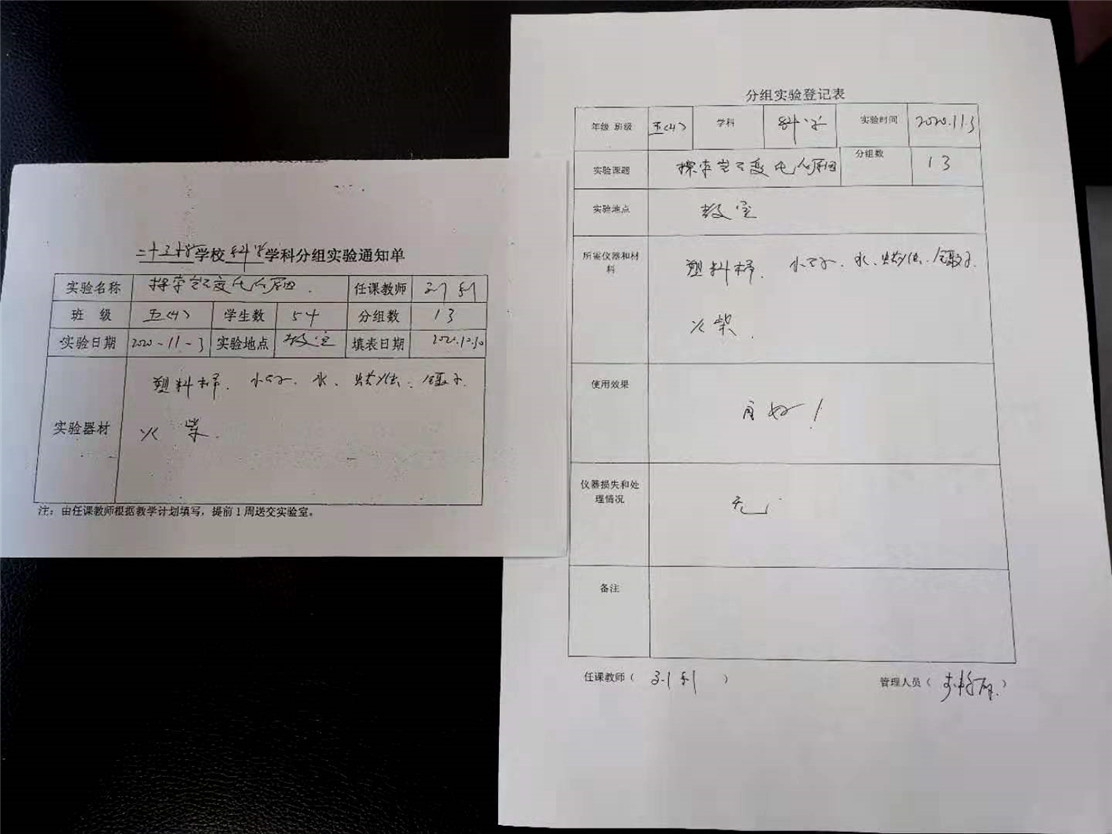 二十三校学校科学学科分组实验通知单
实验名称 探索岩石变化的原因. 任课教师
班 级 五(4) 学生数 54 分组数 13
实验日期 2020-11-3 实验地点 教室 填表日期
实验器材 塑料杯. 小石子. 水. 镊子.
火柴.
注：由任课教师根据教学计划填写，提前1周送交实验室。
分组实验登记表
年级 班级 五(4) 学科 科学 实验时间 2020.11.3
实验课题 探索岩石变化的原因 分组数 13
实验地点 教室
所需仪器和材料 塑料杯. 小石子. 水. 镊子.
火柴.
使用效果 良好!
仪器损失和处理情况 无
备注
任课教师（ ） 管理人员（ ）